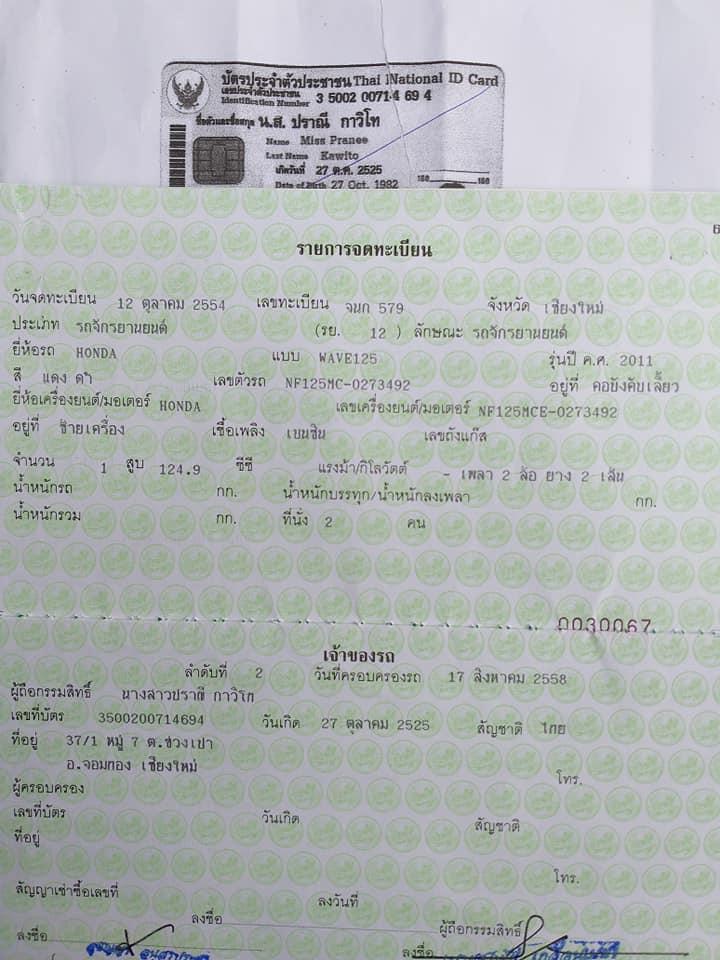 บัตรประจำตัวประชาชน Thai National ID Card
เลขประจำตัวประชาชน
Identification Number 3 5002 00714 69 4
ชื่อตัวและชื่อสกุล น.ส. ปราณี กาวิโท
Name Miss Pranee
Last Name Kawito
เกิดวันที่ 27 ต.ค. 2525
Date of Birth 27 Oct. 1982
รายการจดทะเบียน
วันจดทะเบียน 12 ตุลาคม 2554 เลขทะเบียน จนก 579 จังหวัด เชียงใหม่
ประเภท รถจักรยานยนต์ (รย. 12 ) ลักษณะ รถจักรยานยนต์
ยี่ห้อรถ HONDA แบบ WAVE125 รุ่นปี ค.ศ. 2011
สี แดง ดำ เลขตัวรถ NF125MC-0273492 อยู่ที่ คอบังคับเลี้ยว
ยี่ห้อเครื่องยนต์/มอเตอร์ HONDA เลขเครื่องยนต์/มอเตอร์ NF125MCE-0273492
อยู่ที่ ซ้ายเครื่อง เชื้อเพลิง เบนซิน เลขถังแก๊ส
จำนวน 1 สูบ 124.9 ซีซี แรงม้า/กิโลวัตต์ - เพลา 2 ล้อ ยาง 2 เส้น
น้ำหนักรถ กก. น้ำหนักบรรทุก/น้ำหนักลงเพลา กก.
น้ำหนักรวม กก. ที่นั่ง 2 คน
0030067
เจ้าของรถ
ลำดับที่ 2 วันที่ครอบครองรถ 17 สิงหาคม 2558
ผู้ถือกรรมสิทธิ์ นางสาวปราณี กาวิโท
เลขที่บัตร 3500200714694 วันเกิด 27 ตุลาคม 2525 สัญชาติ ไทย
ที่อยู่ 37/1 หมู่ 7 ต.ข่วงเปา
อ.จอมทอง เชียงใหม่
โทร.
ผู้ครอบครอง
เลขที่บัตร วันเกิด สัญชาติ
ที่อยู่
โทร.
สัญญาเช่าซื้อเลขที่ ลงวันที่
ลงชื่อ ผู้ถือกรรมสิทธิ์
ลงชื่อ ลงชื่อ